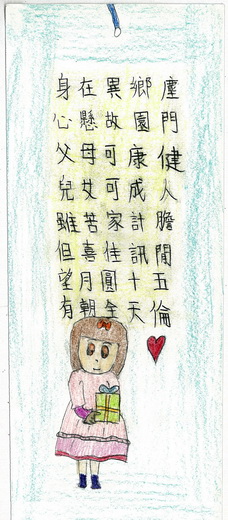 身在異鄉塵
心懸故園門
父母可康健
兒女可成人
雖苦家計膽
但喜佳訊聞
望月圓十五
有朝全天倫